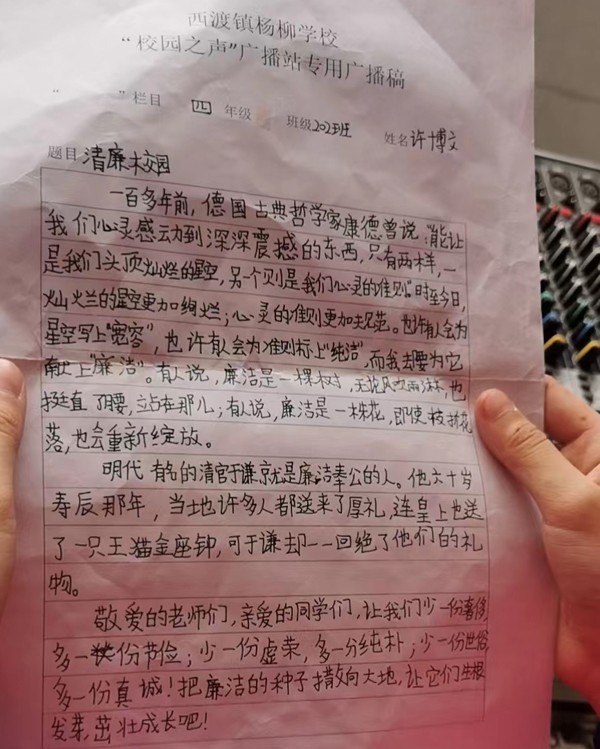 西渡镇杨柳学校
“校园之声”广播站专用广播稿
“ ”栏目 四 年级 班级202班 姓名许博文
题目清廉校园
一百多年前,德国古典哲学家康德曾说:“能让
我们心灵感动到深深震撼的东西,只有两样,一
是我们头顶灿烂的星空,另个则是我们心灵的准则。”时至今日,
灿烂的星空更加绚烂;心灵的准则更加规范。也许有人会为
星空写上“宽容”,也许有人会为准则标上“纯洁”,而我却要为它
献上“廉洁”。有人说,廉洁是一棵树,无论风吹雨淋,也
挺直了腰,立在那儿;有人说,廉洁是一株花,即使枝折花
落,也会重新绽放。
明代有名的清官于谦就是廉洁奉公的人。他六十岁
寿辰那年,当地许多人都送来了厚礼,连皇上也送
了一只王猫金座钟,可于谦却一一回绝了他们的礼
物。
敬爱的老师们,亲爱的同学们,让我们少一份奢侈,
多一份节俭;少一份虚荣,多一分纯朴;少一份世俗,
多一份真诚!把廉洁的种子撒向大地,让它们生根
发芽,茁壮成长吧!